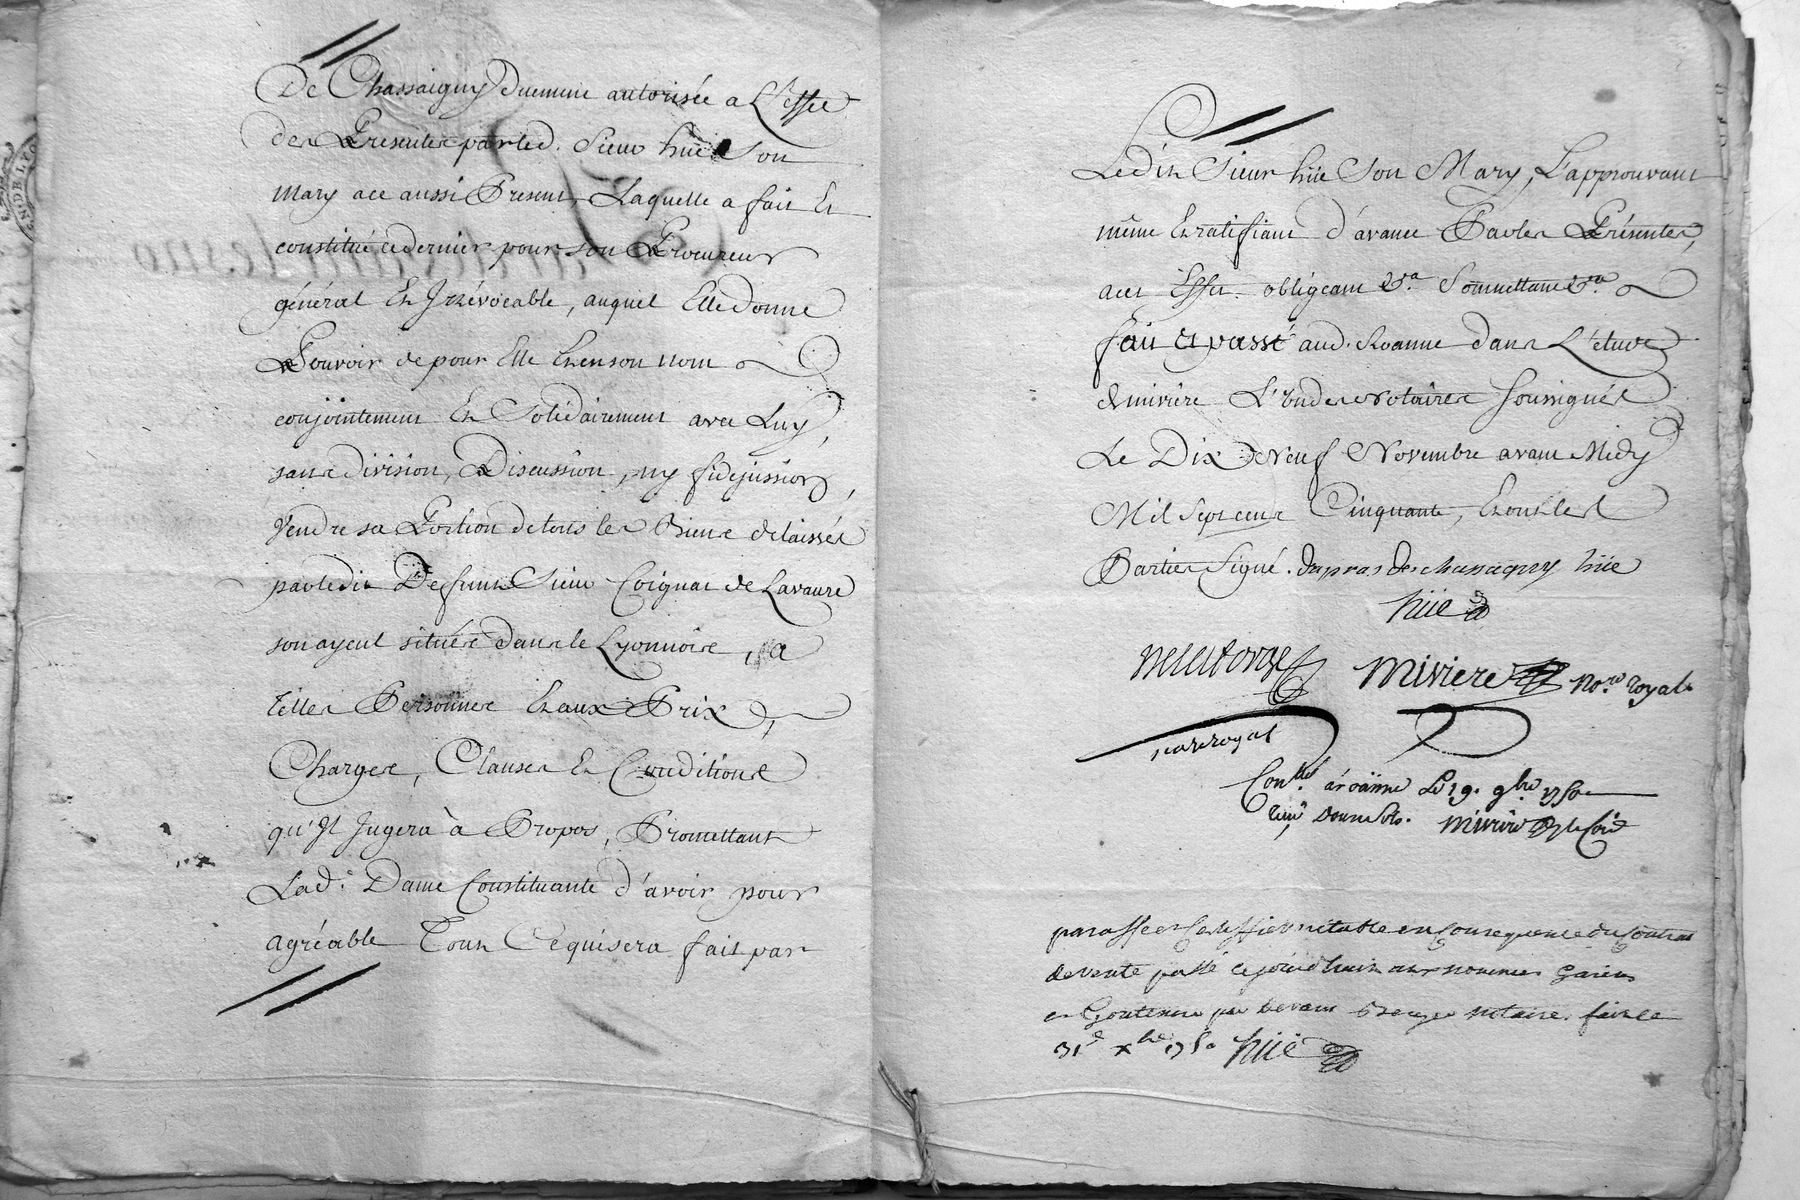 De Chassaigny Duement autorisée a L'effet
des Presentes par led. Sieur hüe Son
Mary ace aussi Present, Laquelle a fait Et
constitué ce dernier pour son Procureur
général Et Irrévocable, auquel Elle donne
Pouvoir de pour Elle Et en son nom
conjointement Et Solidairement avec Luy,
sans division, Discussion, ny fidejussion,
Vendre sa Portion de tous les Biens delaissés
par ledit Deffunt Sieur Coignat de Lavaure
son ayeul situées dans le Lyonnois, a
telles Personnes Et aux Prix,
Charges, Clauses Et Conditions
qu'Il Jugera à Propos, Promettant
Lad.e Dame Constituante d'avoir pour
agréable Tout Ce qui sera fait par
Ledit Sieur hüe Son Mary, L'approuvant
même Et ratifiant d'avance Par les Présentes,
acet Effet obligeant &.a Soumettant &.a
fait et passé aud. Roanne dans L'etude
de mivière L'un des Notaires Soussignés
Le Dix Neuf Novembre avant Midy
Mil Sept cent Cinquante, Et ont les
Parties Signé. Dupras de chassaigny hüe
hüe
Delaforge Mivière No.re royal
notaire royal
Con.llé à roänne Le 19. 9bre 1750
Reçu Douze Sols. Mivière
paraffé et Certiffié véritable en Consequence du Contrat
de vente passé cejourdhuit aux nommés
et par devant notaire. fait le
31e xbre 1750 hüe